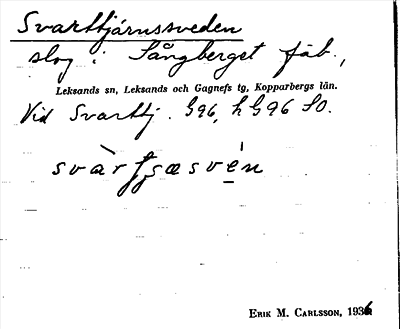 Svarttjärnssveden
slog i Långberget fäb.,
Leksands sn, Leksands och Gagnefs tg, Kopparbergs län.
Vid Svarttj. G96, h G96 SO.
svàrt̯sæsvén
ERIK M. CARLSSON, 1936